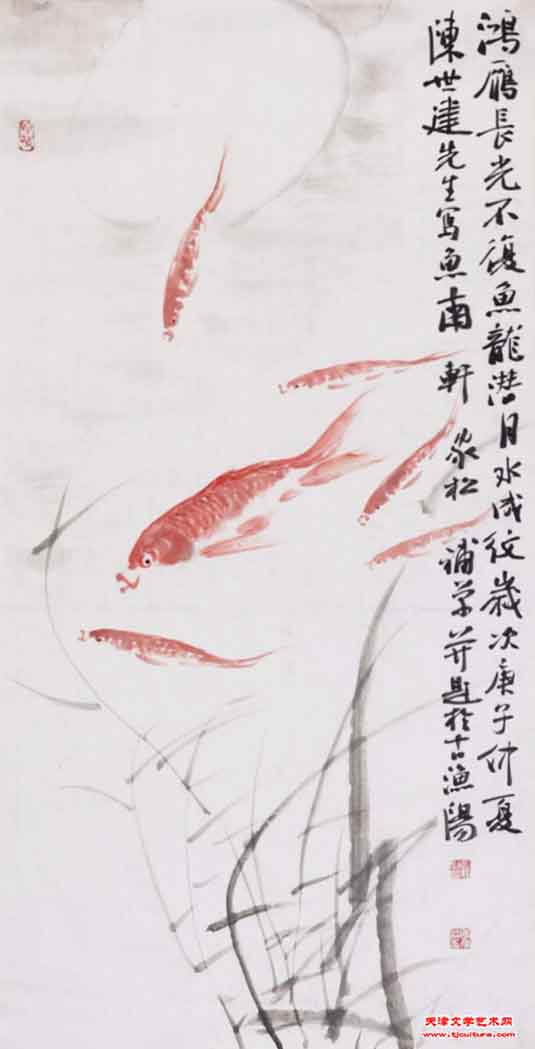 鴻雁長光不復魚龍潛月水成紋歲次庚子仲夏
陳世建先生寫魚南軒家松補草并題於古漁陽
天津文学艺术网
www.tjculture.com